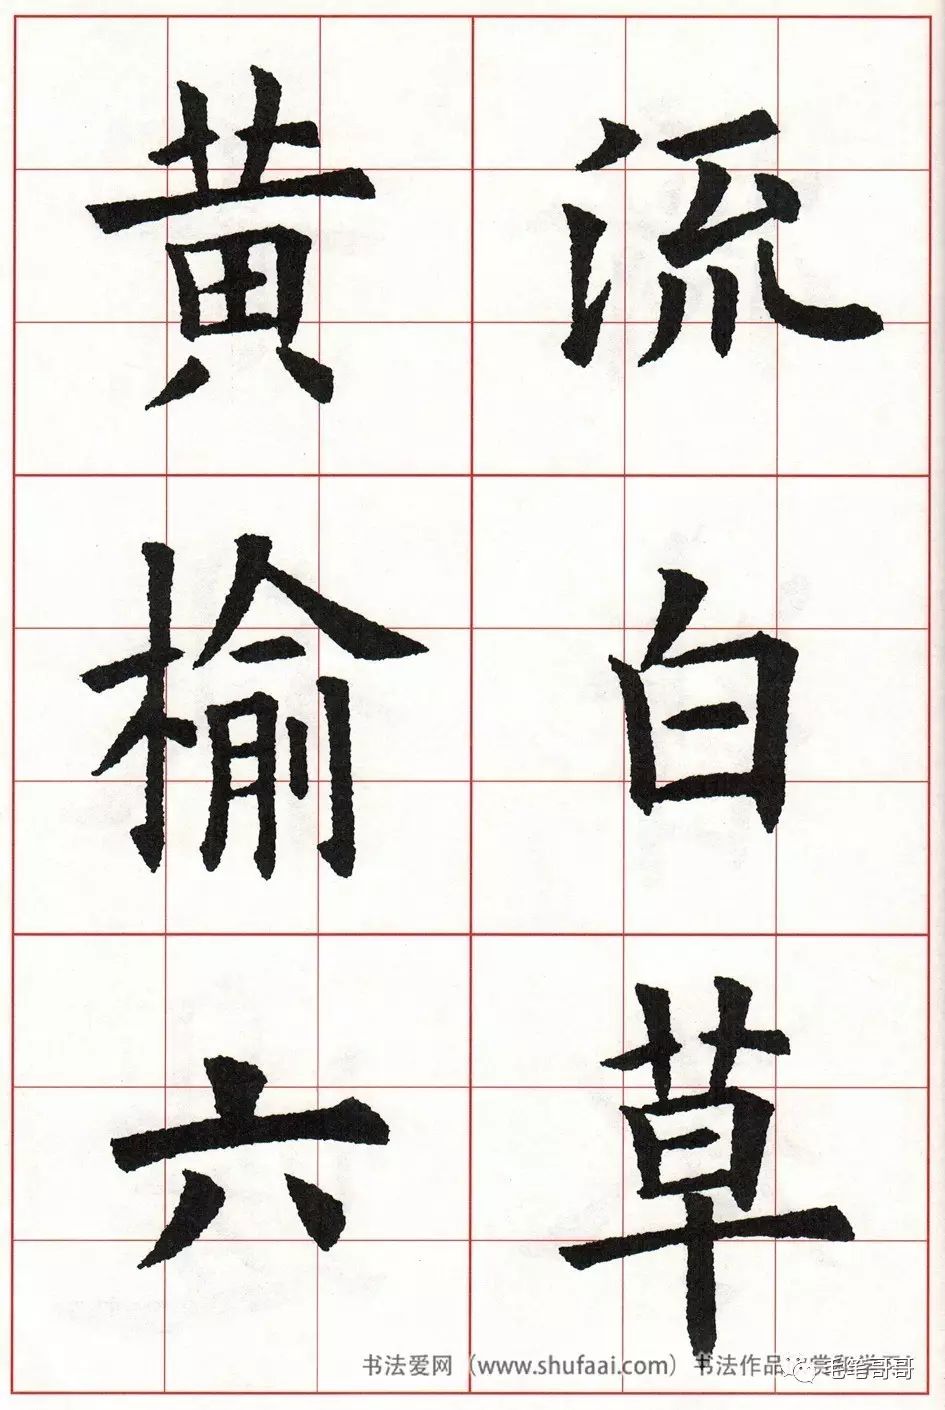 流白草
黄榆六
书法爱网（www.shufaai.com）书法作品
毛笔哥哥